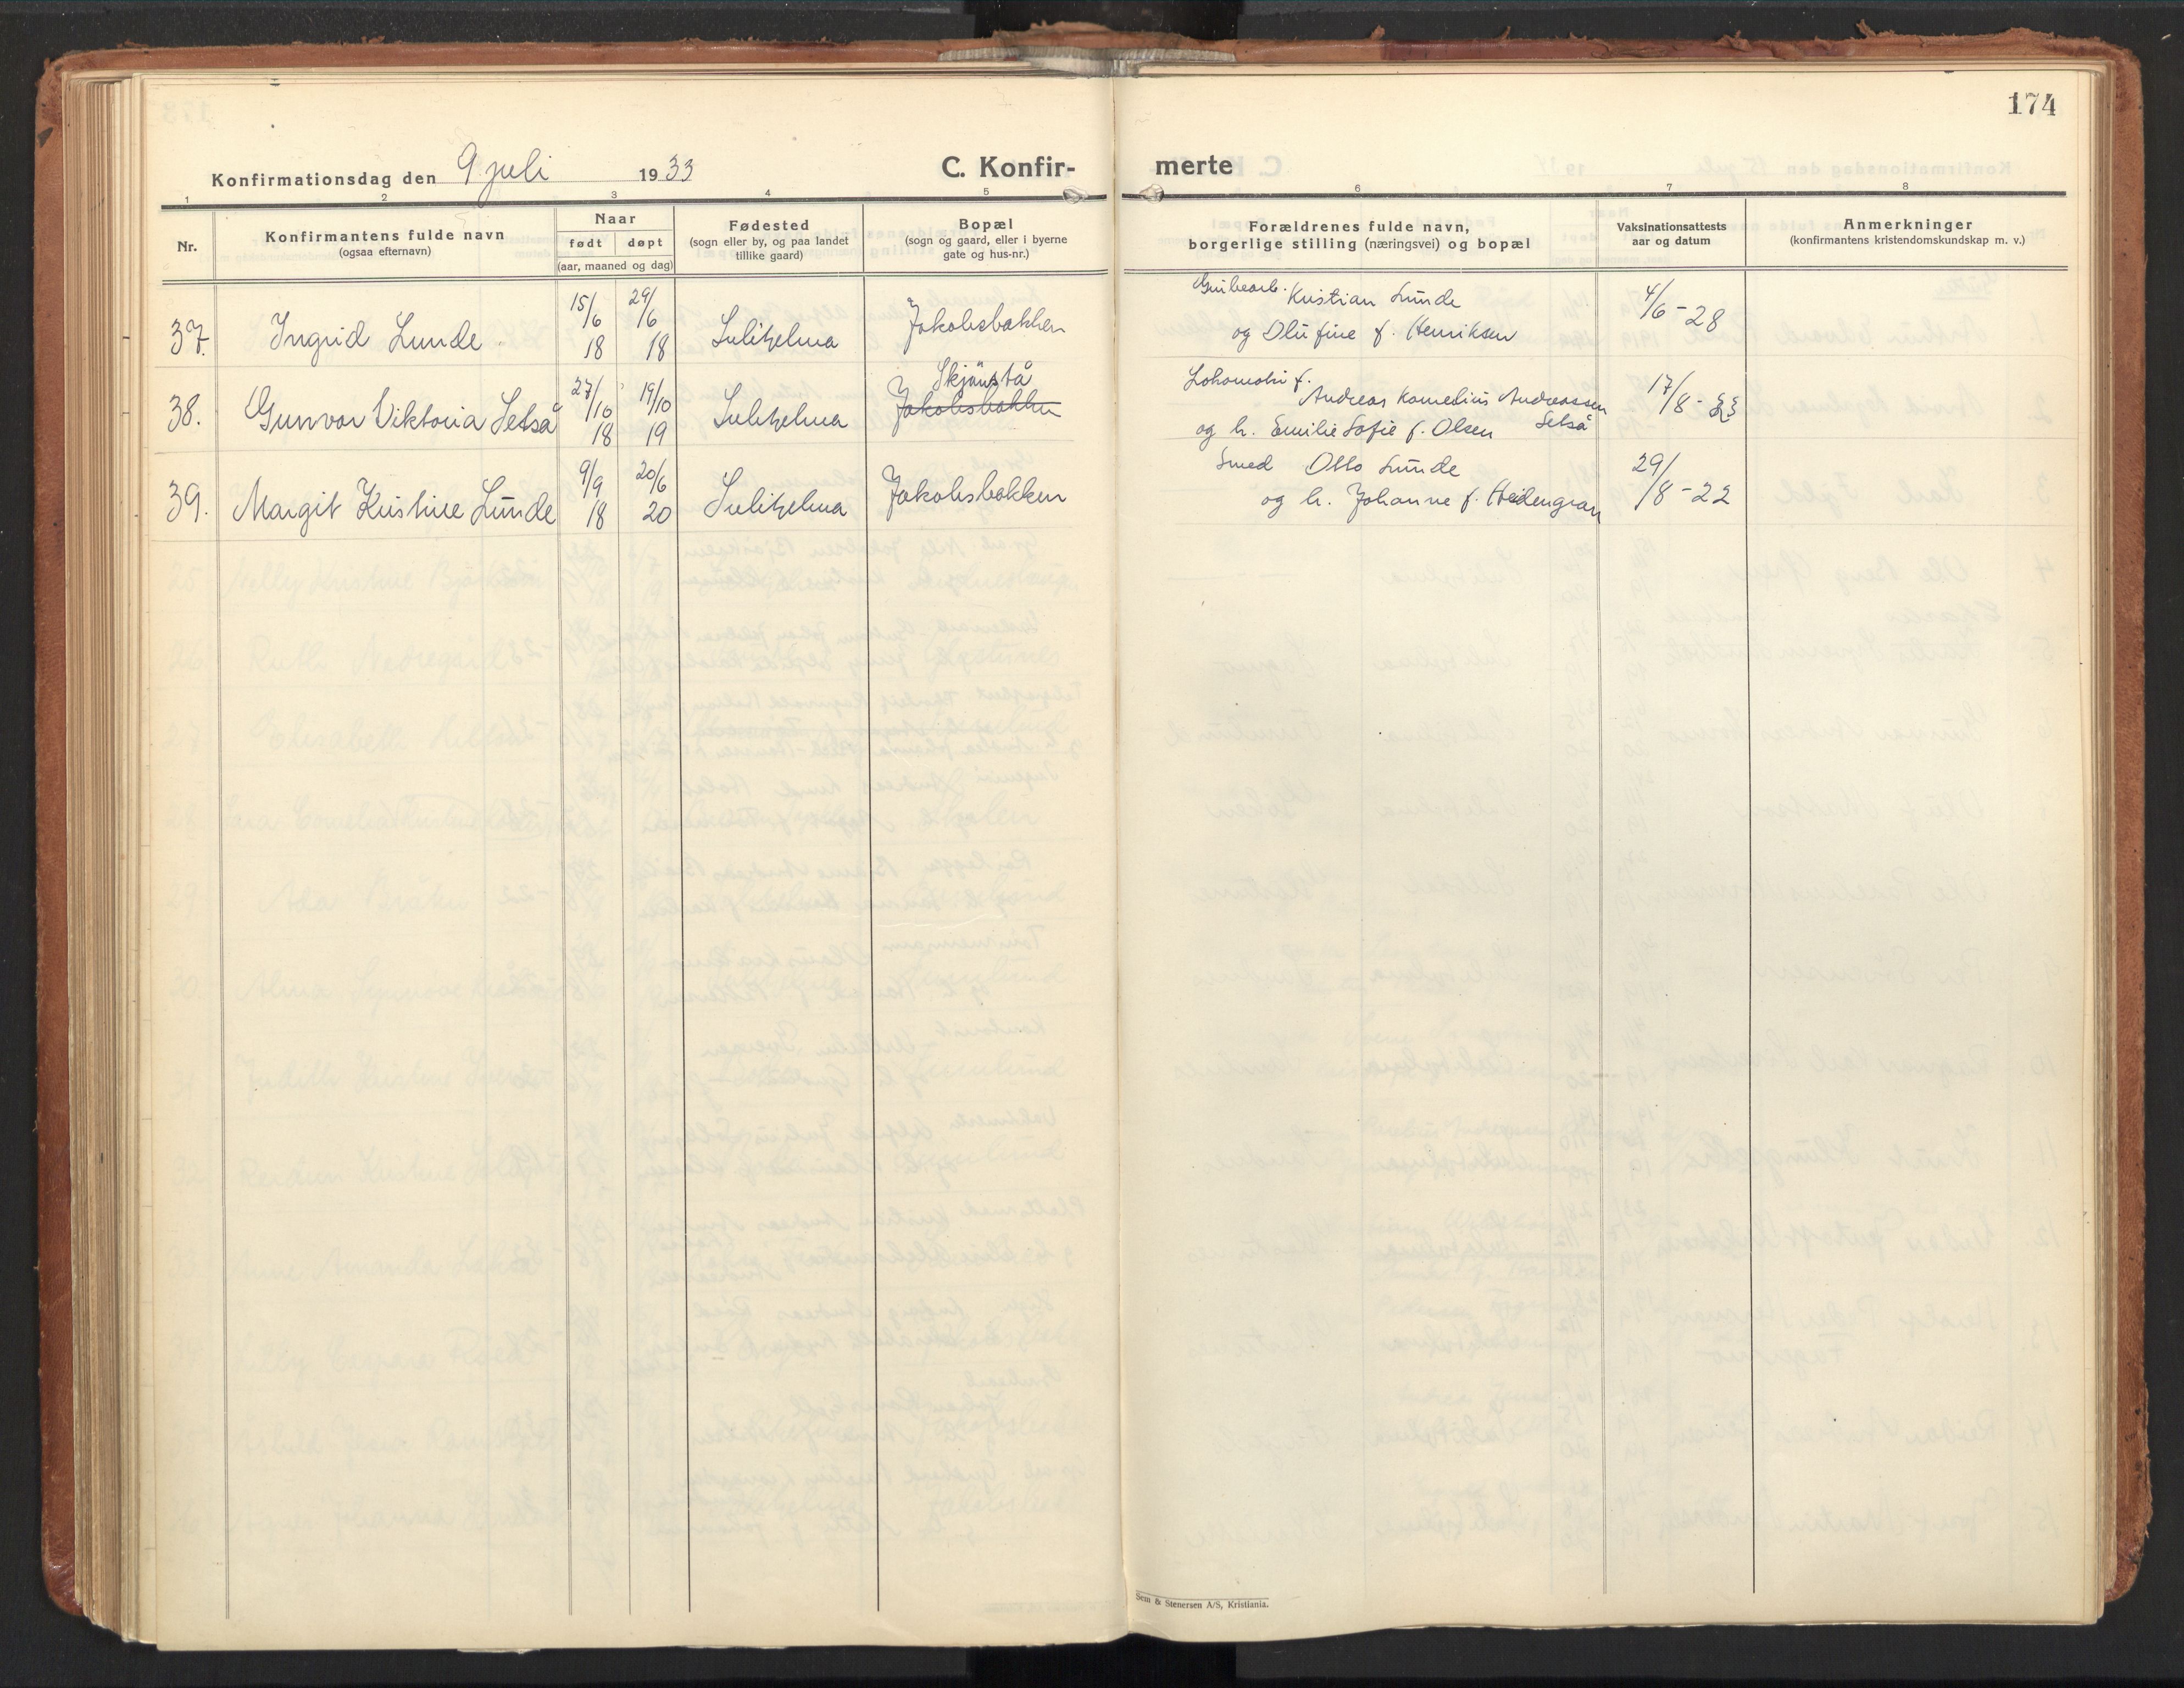 174
Konfirmationsdag den 9 juli 1933
C. Konfir-
merte
1 2 3 4 5 6 7 8
Nr.
Konfirmantens fulde navn
(ogsaa efternavn)
Naar
født døpt
(aar, maaned og dag)
Fødested
(sogn eller by, og paa landet
tillike gaard)
Bopæl
(sogn og gaard, eller i byerne
gate og hus-nr.)
Forældrenes fulde navn,
borgerlige stilling (næringsvei) og bopæl
Vaksinationsattests
aar og datum
Anmerkninger
(konfirmantens kristendomskundskap m. v.)
37. Ingrid Lunde 15/6 18 29/6 18 Sulitjelma Jakobsbakken
Grubearb. Kristian Lunde
og Olufine f. Henriksen
4/6-28
38. Gunvor Viktoria Selså 27/10 18 19/10 19 Sulitjelma Skjönstå
Jakobsbakken
Lokomotivf.
Andreas Kornelius Andreassen
Selså
og h. Emilie Sofie f. Olsen
17/8-
39. Margit Kristine Lunde 9/9 18 20/6 20 Sulitjelma Jakobsbakken
Smed Otto Lunde
og h. Johanne f. Heidengran
29/8-22
Sem & Stenersen A/S, Kristiania.